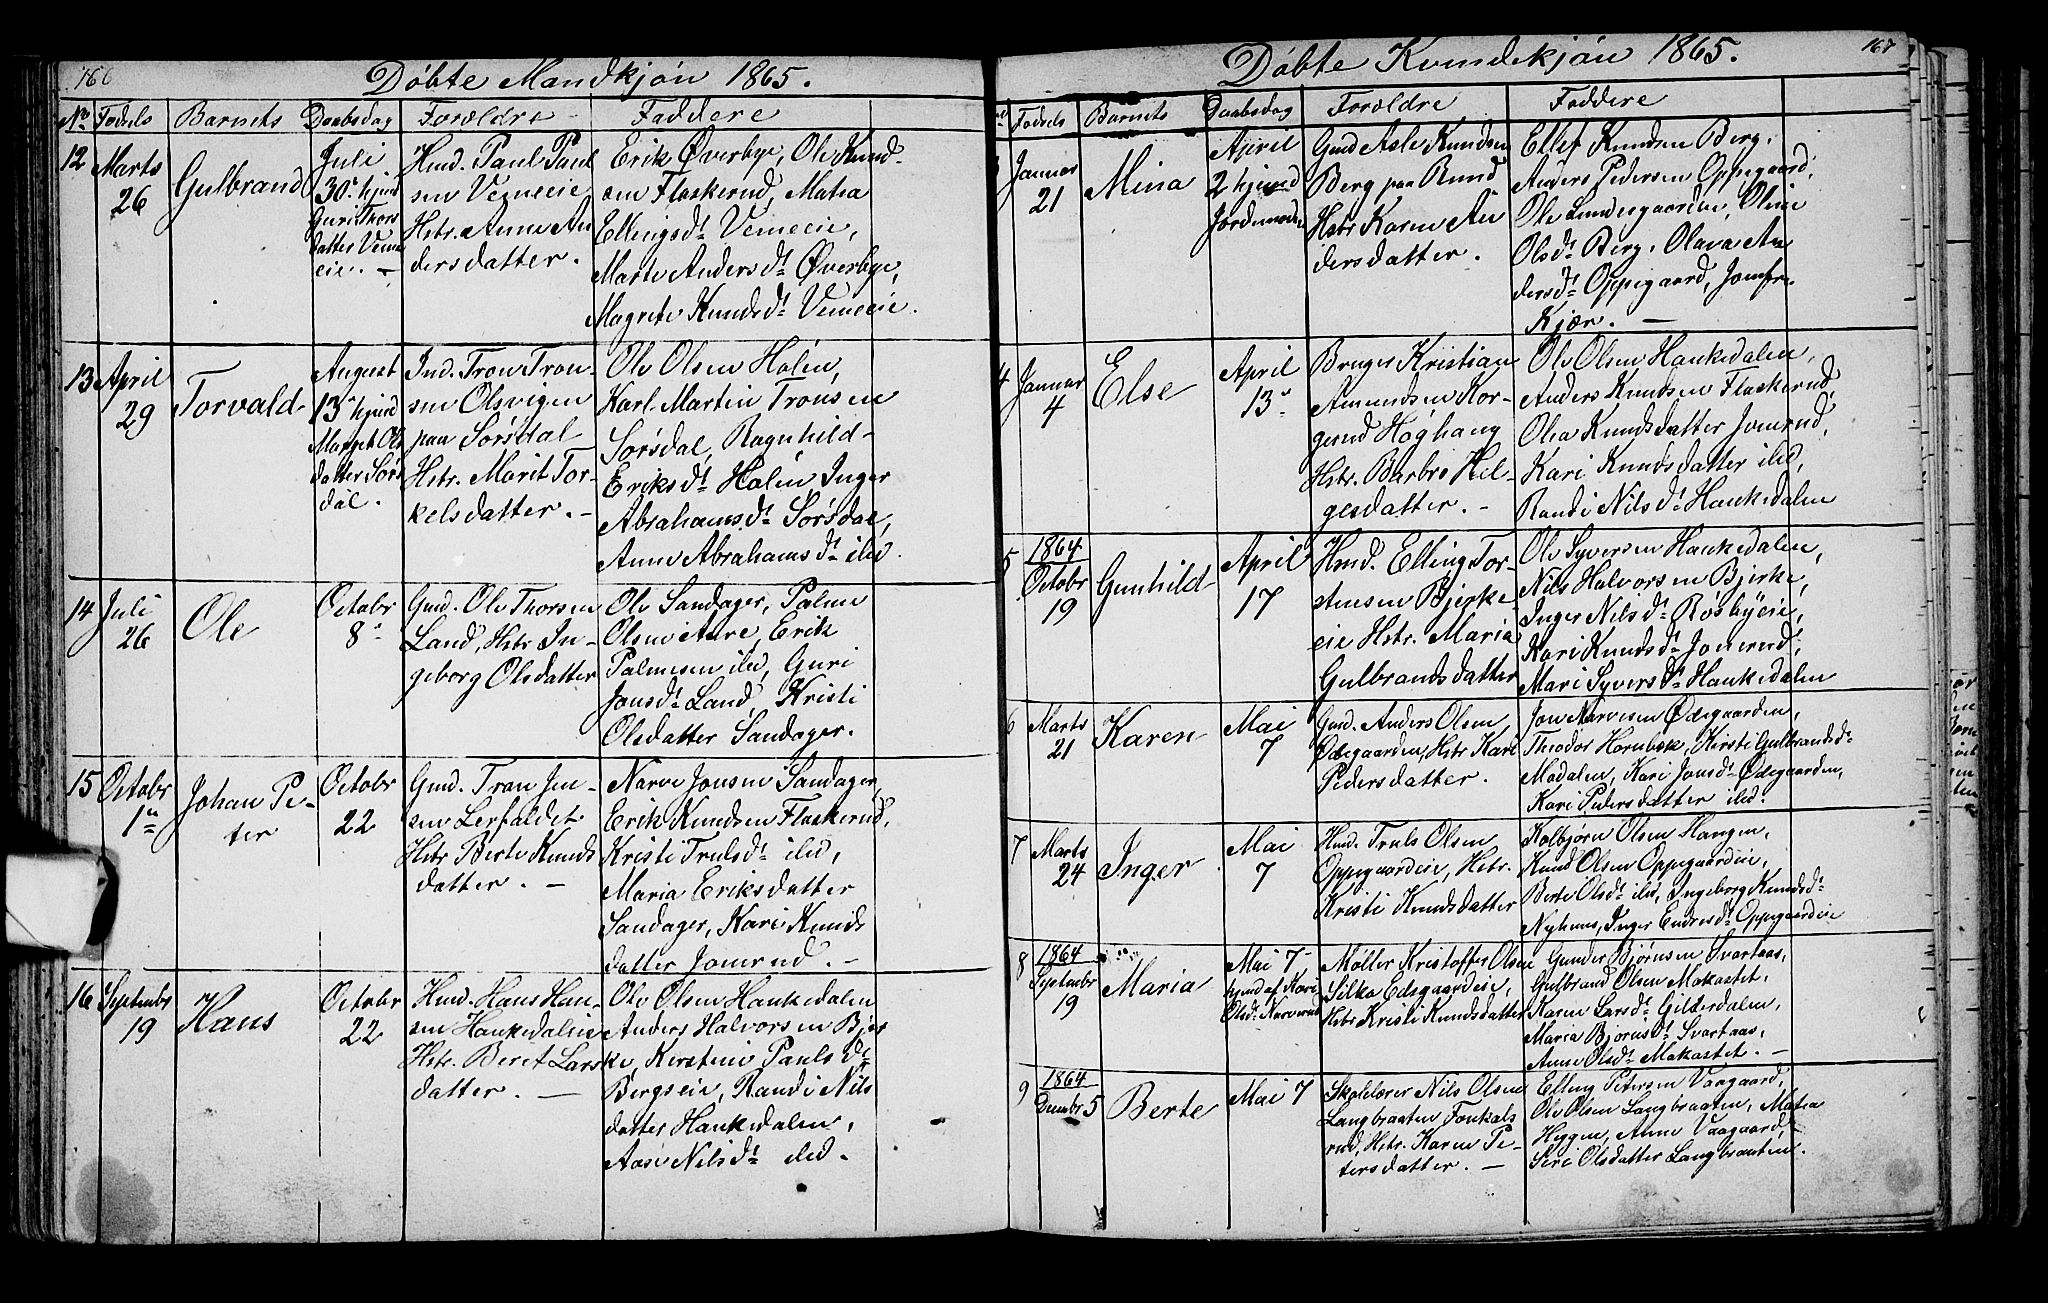 166
Döbte Mandkjön 1865.
No Födsels Barnets Daabsdag Forældre Faddere
12 Marts 26
Gulbrand
Juli
30. hjmd
Guri Thors
datter Veme
eie. —
Hmd. Paul Paul
sen Vemeeie
Hstr. Anne An
dersdatter.
Erik Øverbye, Ole Knud-
sen Flaskerud, Matea
Ellingsdt. Vemeeie,
Marte Andersdt. Øverbye,
Magrete Knudsdt. Vemeeie.
13 April 29
Torvald
August
13. hjmd
Margit Ols
datter Sörs
dal.
Ind. Tron Tron-
sen Olsvigen
paa Sörsdal
Hstr. Marit Tor-
kelsdatter. -
Ole Olsen Holen,
Karl Martin Tronsen
Sörsdal, Ragnhild
Eriksdt. Holen Inger
Abrahamsdt. Sörsdal,
Anne Abrahamsdt. ibd.
14 Juli 26
Ole
Octobr
8.
Gmd. Ole Thorsen
Land, Hstr. In-
geborg Olsdatter
Ole Sandager, Palme
Olsen Aure, Erik
Palmesen ibd, Guri
Jonsdt. Land, Kristi
Olsdatter Sandager.
15 Octobr 1ste
Johan Pe-
ter
Octobr
22
Gmd. Tron Jen-
sen Lerfaldet
Hstr Berte Knuds
datter. —
Narve Jonsen Sandager,
Erik Knudsen Flaskerud,
Kristi Trulsdt. ibd,
Maria Eriksdatter
Sandager, Kari Knuds
datter Jonrud. —
16 Septembr 19
Hans
Octobr
22
Hmd. Hans Han-
sen Hankedaleie
Hstr. Beret Lars
datter. —
Ole Olsen Hankedalen
Anders Halvorsen Bjer
ke, Kerstine Paulsdt.
Bergseie, Randi Nils
datter Hankedalen,
Aase Nilsdt. ibd.
167
Döbte Kvindekjön 1865.
Födsels Barnets Daabsdag Forældre Faddere
Januar 21
Mina
April
2 hjmd
Jordemoder
Gmd Asle Knudsen
Berg paa Rund
Hstr Karen An
dersdatter.
Ellef Knudsen Berg,
Anders Pedersen Oppegaard,
Ole Lundesgaarden, Oline
Olsdt. Berg, Olava An
dersdt. Oppegaard, Jomfru
Kjær. —
4 Januar 4
Else
April
13.
Bruger Kristian
Amundsen Kor-
gerud Høghaug
Hstr. Barbro Hel-
gesdatter. -
Ole Olsen Hankedalen,
Anders Knudsen Flaskerud
Olea Knudsdatter Jonrud,
Kari Knudsdatter ibd,
Randi Nilsdt. Hankedalen
5 1864 Octobr 19
Gunhild
April
17
Hmd. Elling Tor-
stensen Bjerke-
eie Hstr. Maria
Gulbrandsdatter
Ole Syversen Hankedalen,
Nils Halvorsen Bjerke,
Inger Nilsdt. Røsbyeie,
Kari Knudsdt. Jonrud,
Mari Syversdt. Hankedalen
6 Marts 21
Karen
Mai
7
Gmd. Anders Olsen
Ødegaarden, Hstr Kari
Pedersdatter.
Jon Narvesen Ødegaarden,
Theodor Hornbæk, Kirsti Gulbrandsdt.
Modalen, Kari Jonsdt. Ødegaarden,
Kari Pedersdatter ibd.
7 Marts 24
Inger
Mai
7
Hmd. Truls Olsen
Oppegaardeie, Hstr.
Kristi Knudsdatter
Kolbjörn Olsen Haugen,
Knud Olsen Oppegaardeie,
Berte Olsdt. ibd, Ingeborg Knudsdt.
Nyhuus, Inger Endresdt. Oppegaardeie
8 1864 Septembr 19
Maria
Mai 7
hjmd af Kari
Olsdt. Narverud
Møller Kristoffer Olsen
Silka Edsgaardeie,
Hstr Kristi Knudsdatter
Gunder Bjørnsen Svartaas,
Gulbrand Olsen Makastet,
Karen Larsdt. Gilderdalen,
Maria Bjørnsdt. Svartaas,
Anne Olsdt. Makastet. —
9 1864 Decembr 5
Berte
Mai 7
Skolelærer Nils Olsen
Langbraaten Fonkals
rud, Hstr. Karen Pe-
tersdatter. —
Elling Petersen Vaagaard,
Ole Olsen Langbraaten, Matea
Heggen, Anne Vaagaard
Siri Olsdatter Langbraaten.